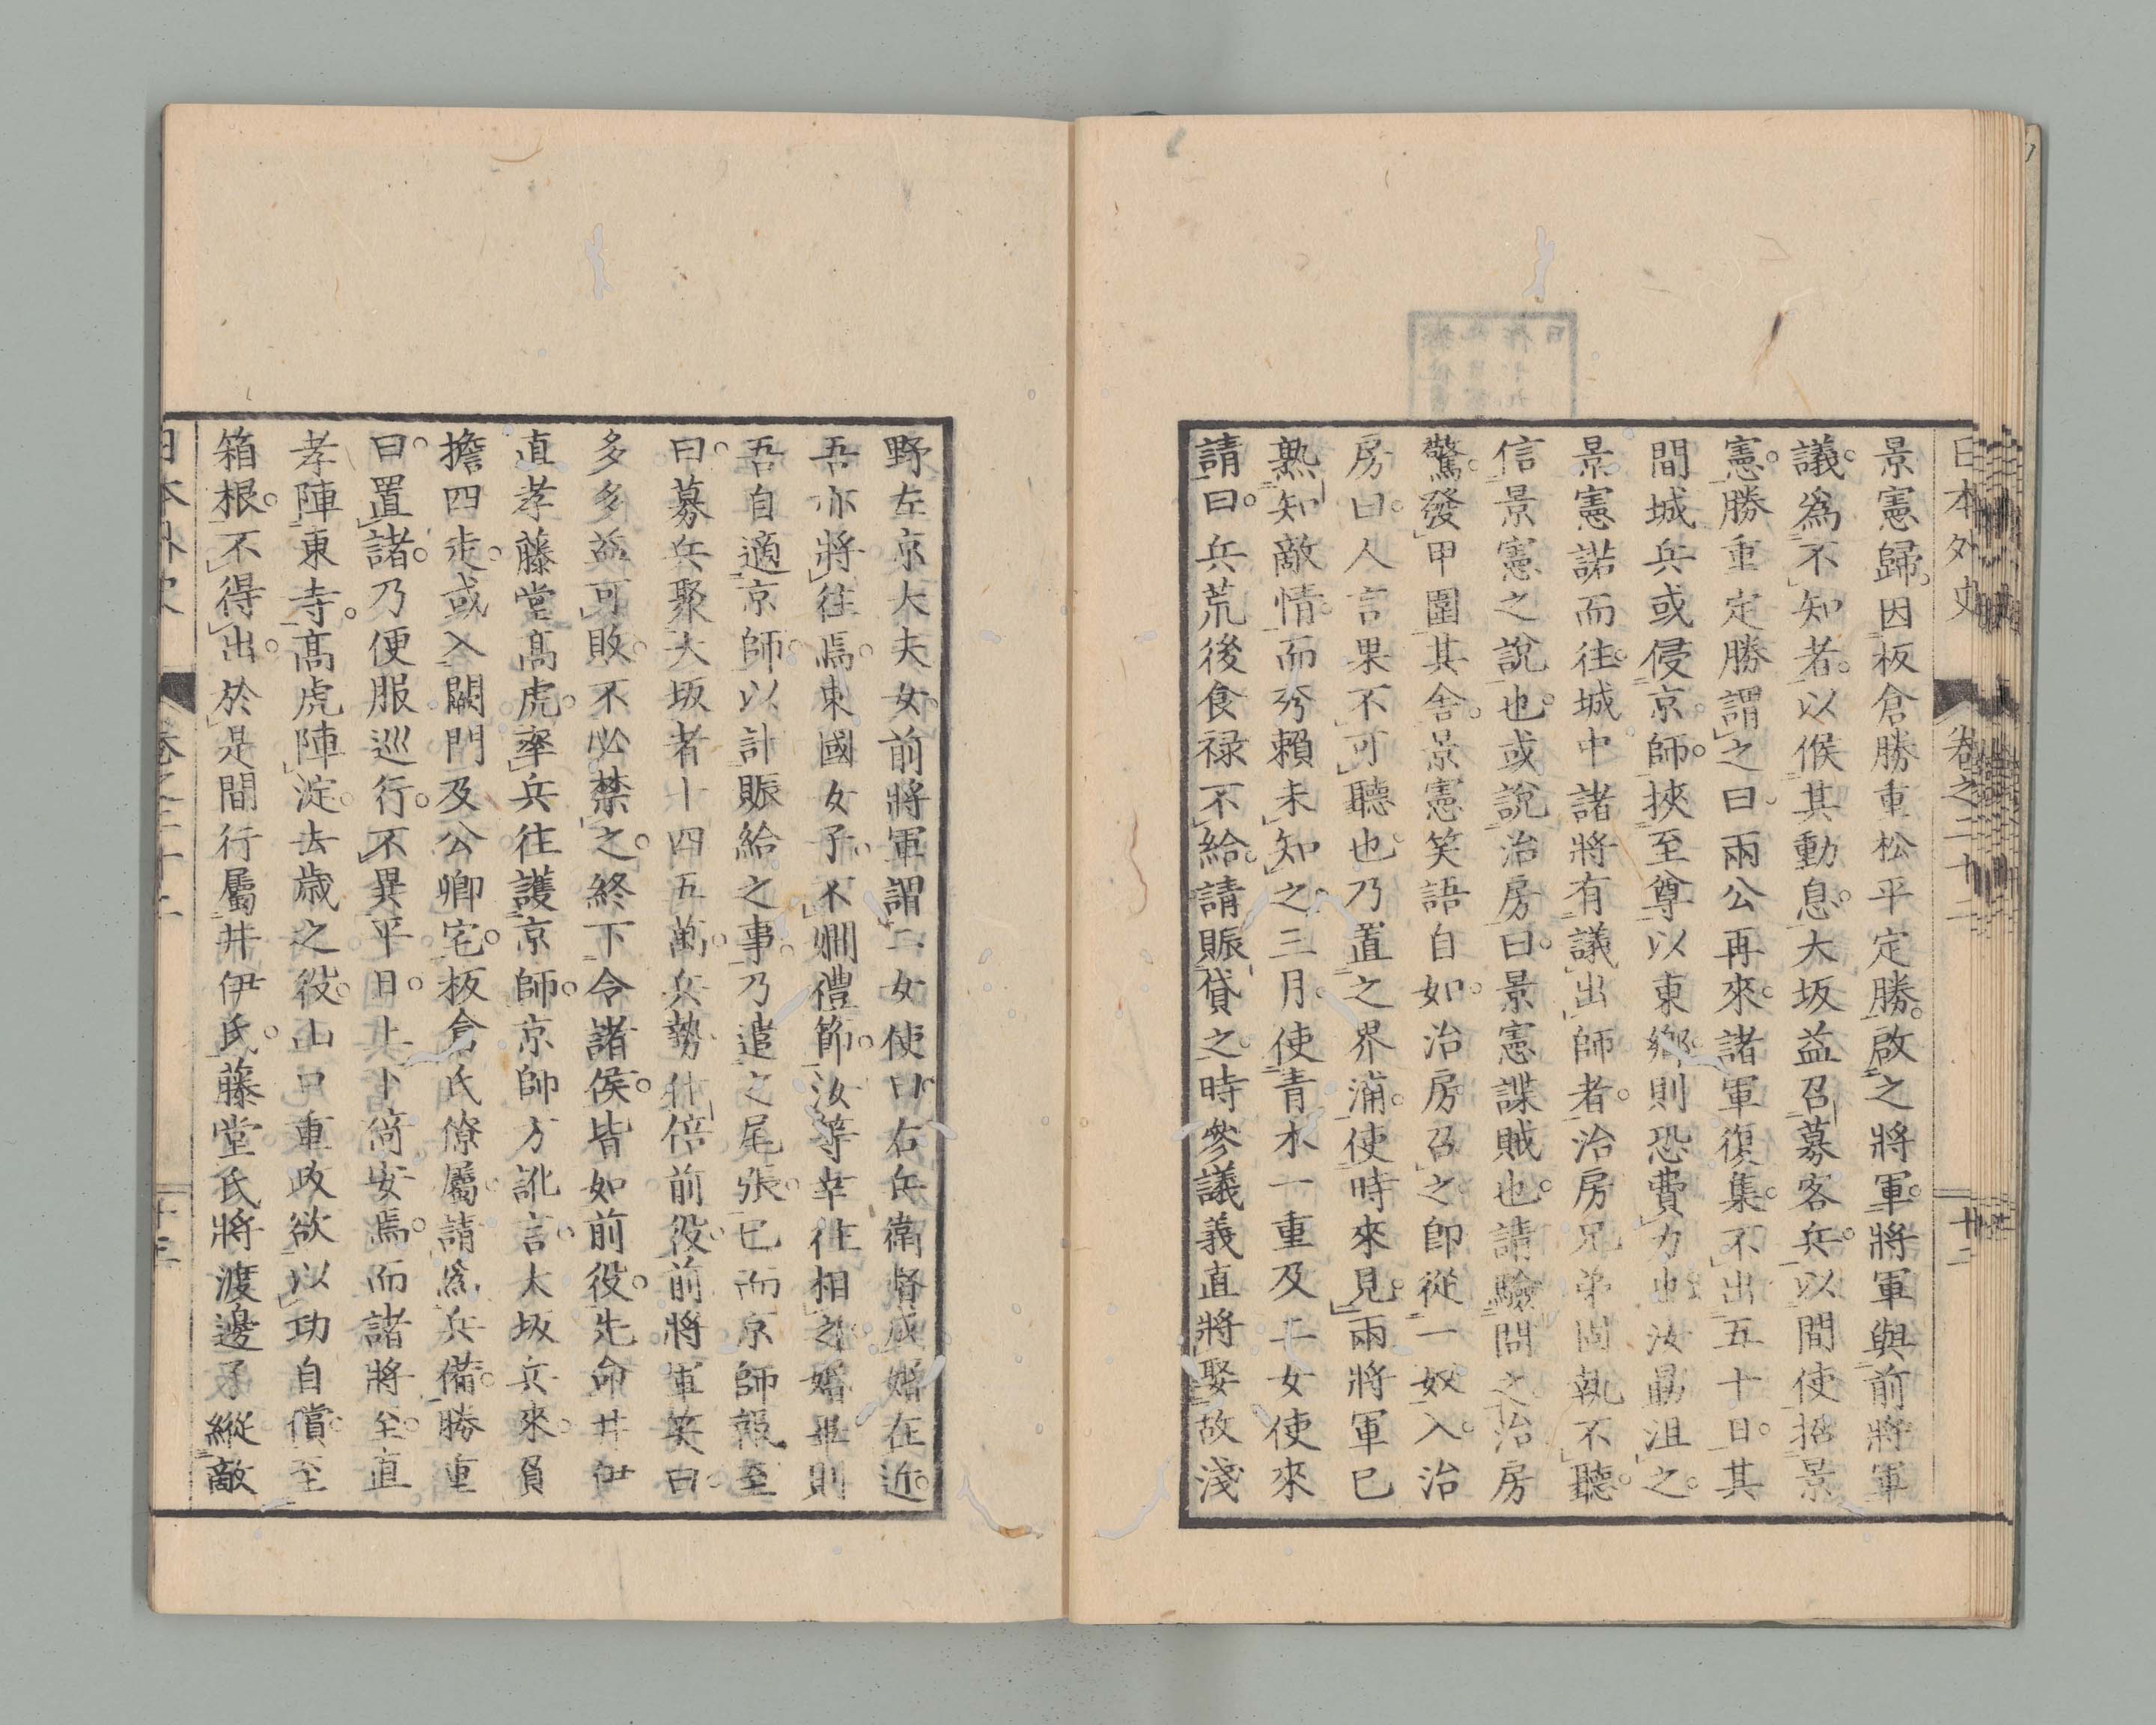 日本外史 卷之二十二 廿二
景憲歸。因板倉勝重松平定勝。啟之將軍。將軍與前將軍
議。爲不知者。以候其動息。大坂益召募客兵。以間使招景
憲。勝重定勝謂之曰。兩公再來。諸軍復集。不出五十日。其
間城兵或侵京師。挾至尊以東鄉。則恐費力也。汝勗沮之。
景憲諾而往。城中諸將有議出師者。治房兄弟固執不聽。
信景憲之說也。或說治房曰。景憲諜賊也。請驗問之。治房
驚。發甲圍其舍。景憲笑語自如。治房召之。卽從一奴入。治
房曰。人言果不可聽也。乃置之界浦。使時來見。兩將軍已
熟知敵情。而秀賴未知之。三月。使青木一重及二女使來
請曰。兵荒後食祿不給。請賑貸之。時參議義直將娶故淺
野左京大夫女。前將軍謂二女使曰。右兵衞督成婚在近。
吾亦將往焉。東國女子。不嫺禮節。汝等幸往相之。婚畢則
吾自適京師。以計賑給之事。乃遣之尾張。已而京師報至
曰。募兵聚大坂者十四五萬。兵勢什倍前役。前將軍笑曰。
多多益可敗。不必禁之。終下令諸侯。皆如前役。先命井伊
直孝藤堂高虎。率兵往護京師。京師方訛言。大坂兵來。負
擔四走。或入闕門及公卿宅。板倉氏僚屬。請爲兵備。勝重
曰。置諸。乃便服巡行。不異平日。共上下倚安焉。而諸將至。直
孝陣東寺。高虎陣淀。去歲之役。山口重政欲以功自償。至
箱根。不得出。於是間行屬井伊氏。藤堂氏將渡邊了縱敵